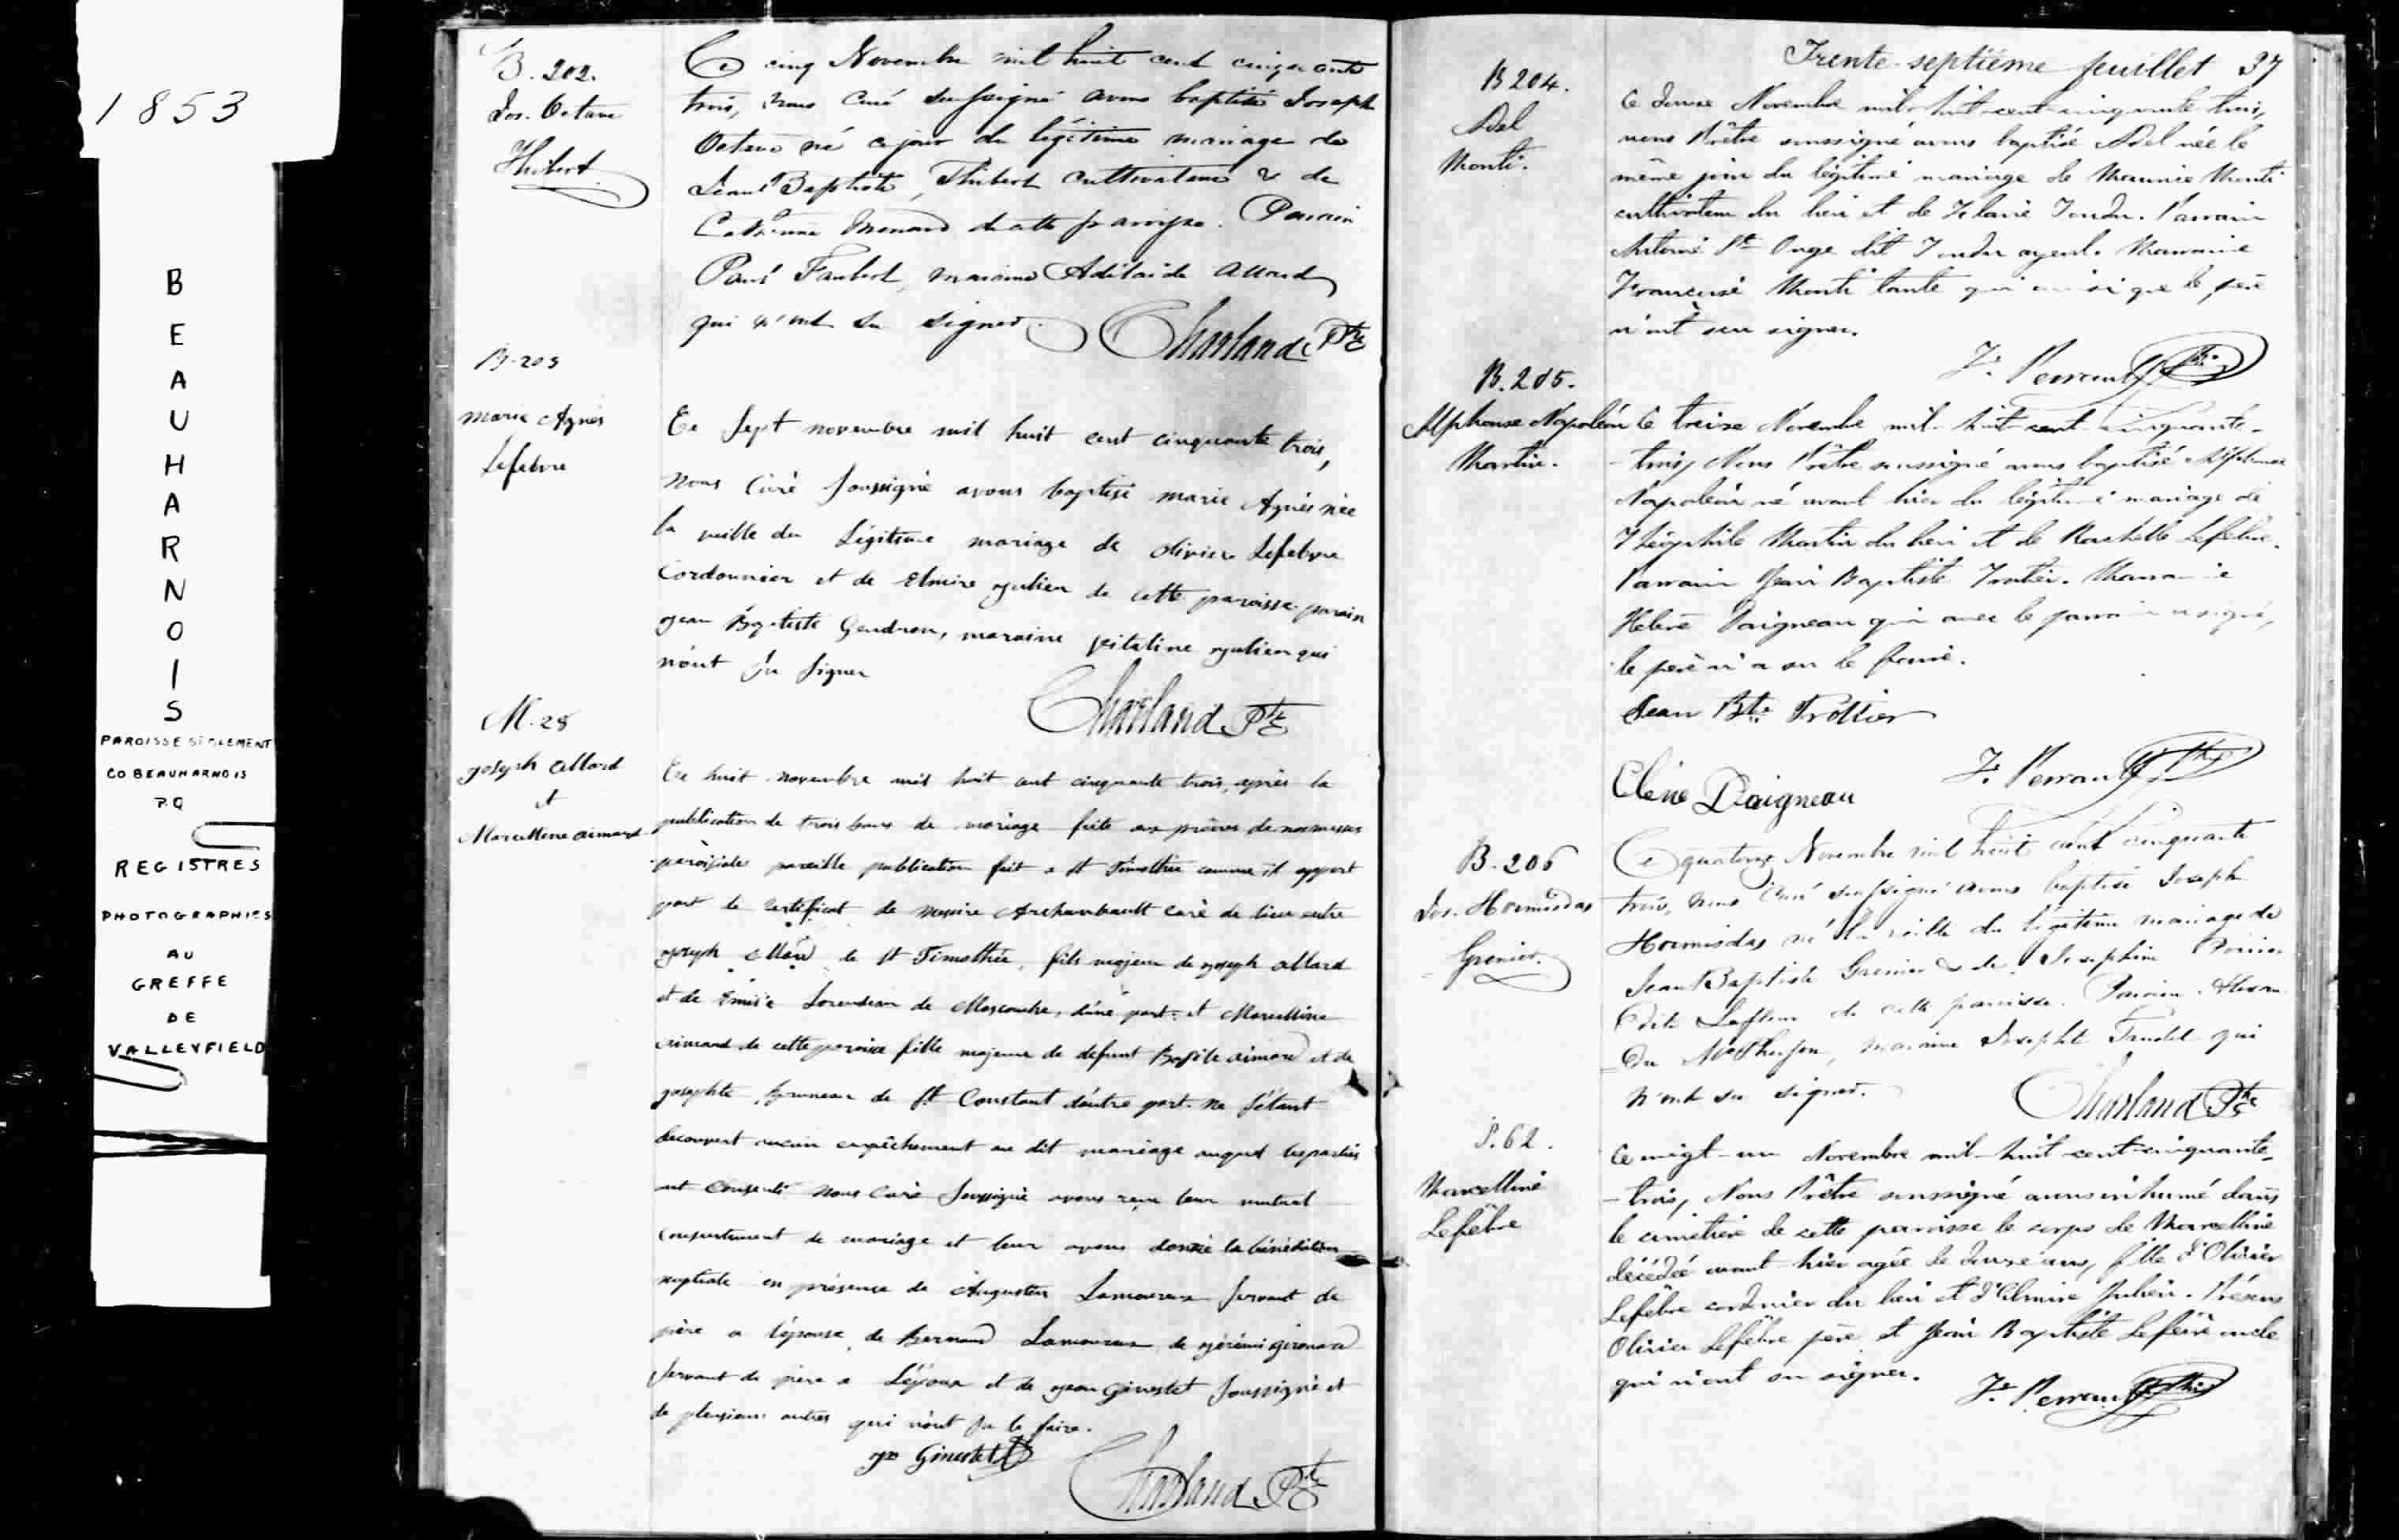 1853
BEAUHARNOIS
PAROISSE ST CLEMENT
CO BEAUHARNOIS
P.Q
REGISTRES
PHOTOGRAPHIES
AU
GREFFE
DE
VALLEYFIELD
B. 202.
Jos. Octave
Thibert
Ce cinq Novembre mil huit cent cinquante
trois, nous Curé soussigné avons baptisé Joseph
Octave né ce jour du légitime mariage de
Jean Baptiste Thibert cultivateur & de
Catherine Menard de cette paroisse. Parain
Paul Faubert, maraine Adélaide Allard
qui n'ont su signer.
Charland Ptre
B-203
marie Agnès
Lefebvre
Ce Sept novembre mil huit cent cinquante trois,
nous Curé soussigné avons baptisé marie Agnès née
la veille du Légitime mariage de olivier Lefebvre
Cordonnier et de Elmire julien de cette paroisse parain
jean Baptiste Gendron, maraine vitaline julien qui
n'ont su signer
Charland Ptre
M-28
joseph allard
et
Marcelline aimard
Ce huit novembre mil huit cent cinquante trois, après la
publication de trois bans de mariage faite aux prônes de nos messes
paroissiales pareille publication fait a St Timothée comme il appert
par le certificat de messire Archambault curé de lieu entre
joseph allard de St Timothée, fils majeur de joseph allard
et de Emilie Loreudeau de Mascouche, d'une part. et Marcelline
aimard de cette paroisse fille majeure de defunt Basile aimard et de
josephte Bruneau de St Constant d'autre part. ne s'étant
decouvert aucun empêchement au dit mariage auquel les parties
ont consenti nous Curé soussigné avons reçu leur mutuel
consentement de mariage et leur avons donnée la bénédiction
nuptiale en présence de Augustin Lamoureux servant de
père a l'épouse, de Bernard Lamoureux de jérémi girouard
servant de père a L'époux et de jean Ginestet soussigné et
de plusieurs autres qui n'ont su le faire.
jn Ginestet
Charland Ptre
Trente-septième feuillet 37
B 204.
Adel
Monti.
Ce douze Novembre mil-huit-cent-cinquante-trois,
nous Prêtre soussigné avons baptisé Adel née le
même jour du légitime mariage de Maurice Monti
cultivateur du lieu et de Tondu. Parrain
Antoine St Onge dit Tondu ayeul. Marraine
Françoise Monti tante qui ainsi que le père
n'ont su signer.
F. Perrault Ptre
B. 205.
Alphonse Napoléon
Martin.
Ce treize Novembre mil-huit cent-cinquante-
-trois, Nous Prêtre soussigné avons baptisé Alphonse
Napoléon né avant hier du légitime mariage de
Théophile Martin du lieu et de Rachelle Lefebvre.
Parrain Jean Baptiste Trotier. Marraine
Hélène Daigneau qui avec le parrain a signé,
le père n'a su le faire.
Jean Bte Trottier
Elène Daigneau
F. Perrault Ptre
B. 206
Jos. Hormisdas
Grenier.
Ce quatorze Novembre mil huit cent cinquante
trois, nous Curé soussigné avons baptisé Joseph
Hormisdas né la veille du légitime mariage de
Jean Baptiste Grenier & de Josephine Poirier
dite Lafleur de cette paroisse. Parain
McPherson, maraine Josephte qui
n'ont su signer.
Charland Ptre
S. 62.
Marcelline
Lefebvre
Ce vingt-un Novembre mil-huit-cent-cinquante-
-trois, Nous Prêtre soussigné avons inhumé dans
le cimetière de cette paroisse le corps de Marcelline
décédée avant-hier agée de douze ans, fille d'Olivier
Lefebvre cordonier du lieu et d'Elmire Julien. Présens
Olivier Lefebvre père et Jean Baptiste Lefebvre oncle
qui n'ont su signer.
F. Perrault Ptre